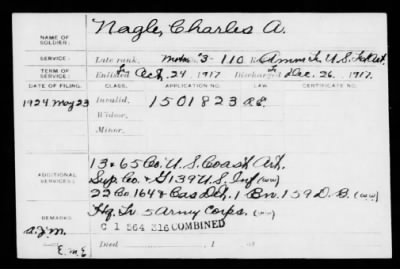 NAME OF SOLDIER: Nagle, Charles A.
SERVICE: Late rank, Motor 3-110 Re Amm Tr U.S.
TERM OF SERVICE: Enlisted Oct. 24, 1917. Discharged Dec. 26, 1917.
DATE OF FILING. CLASS. APPLICATION NO. LAW. CERTIFICATE NO.
1924 May 23 Invalid, 1501823
Widow,
Minor,
ADDITIONAL SERVICES: 13 & 65 Co. U.S. Coast Art.
Sup. Co. & G 139 U.S. Inf (WW)
22 Co 164 & Cas Det. 1 Bn. 159 D.B. (WW)
REMARKS: Hq. Tr 5 Army Corps. (WW)
C 1 564 316 COMBINED
Died , 1 , at